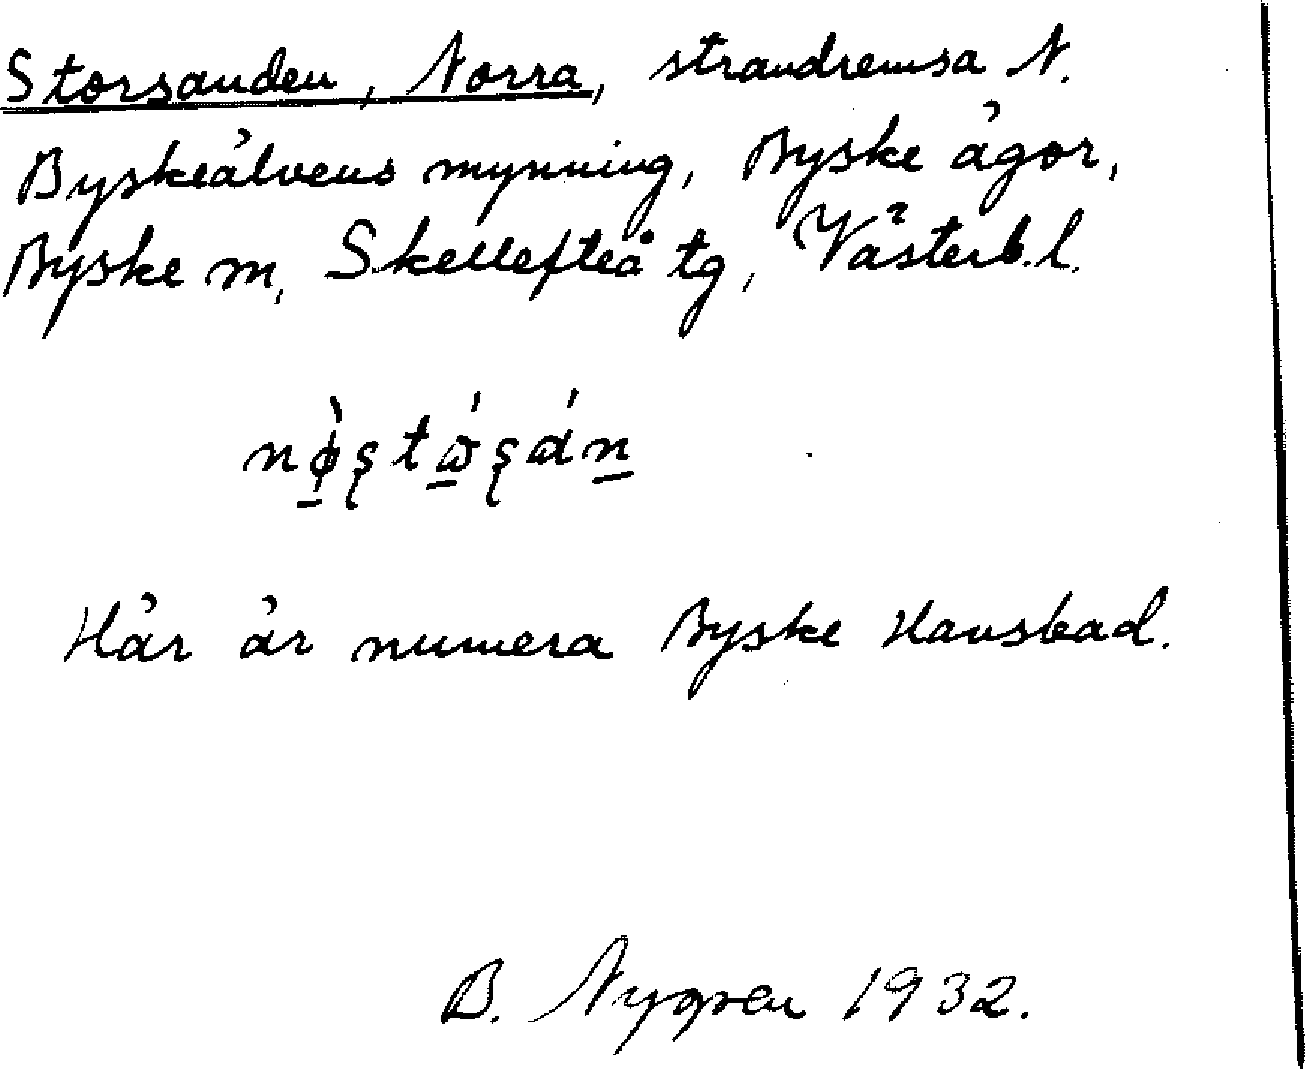 Storsanden, Norra, strandremsa N.
Byskeälvens mynning, Byske ägor,
Byske sn, Skellefteå tg, Västerb.l.
Här är numera Byske Havsbad.
B. Nygren 1932.